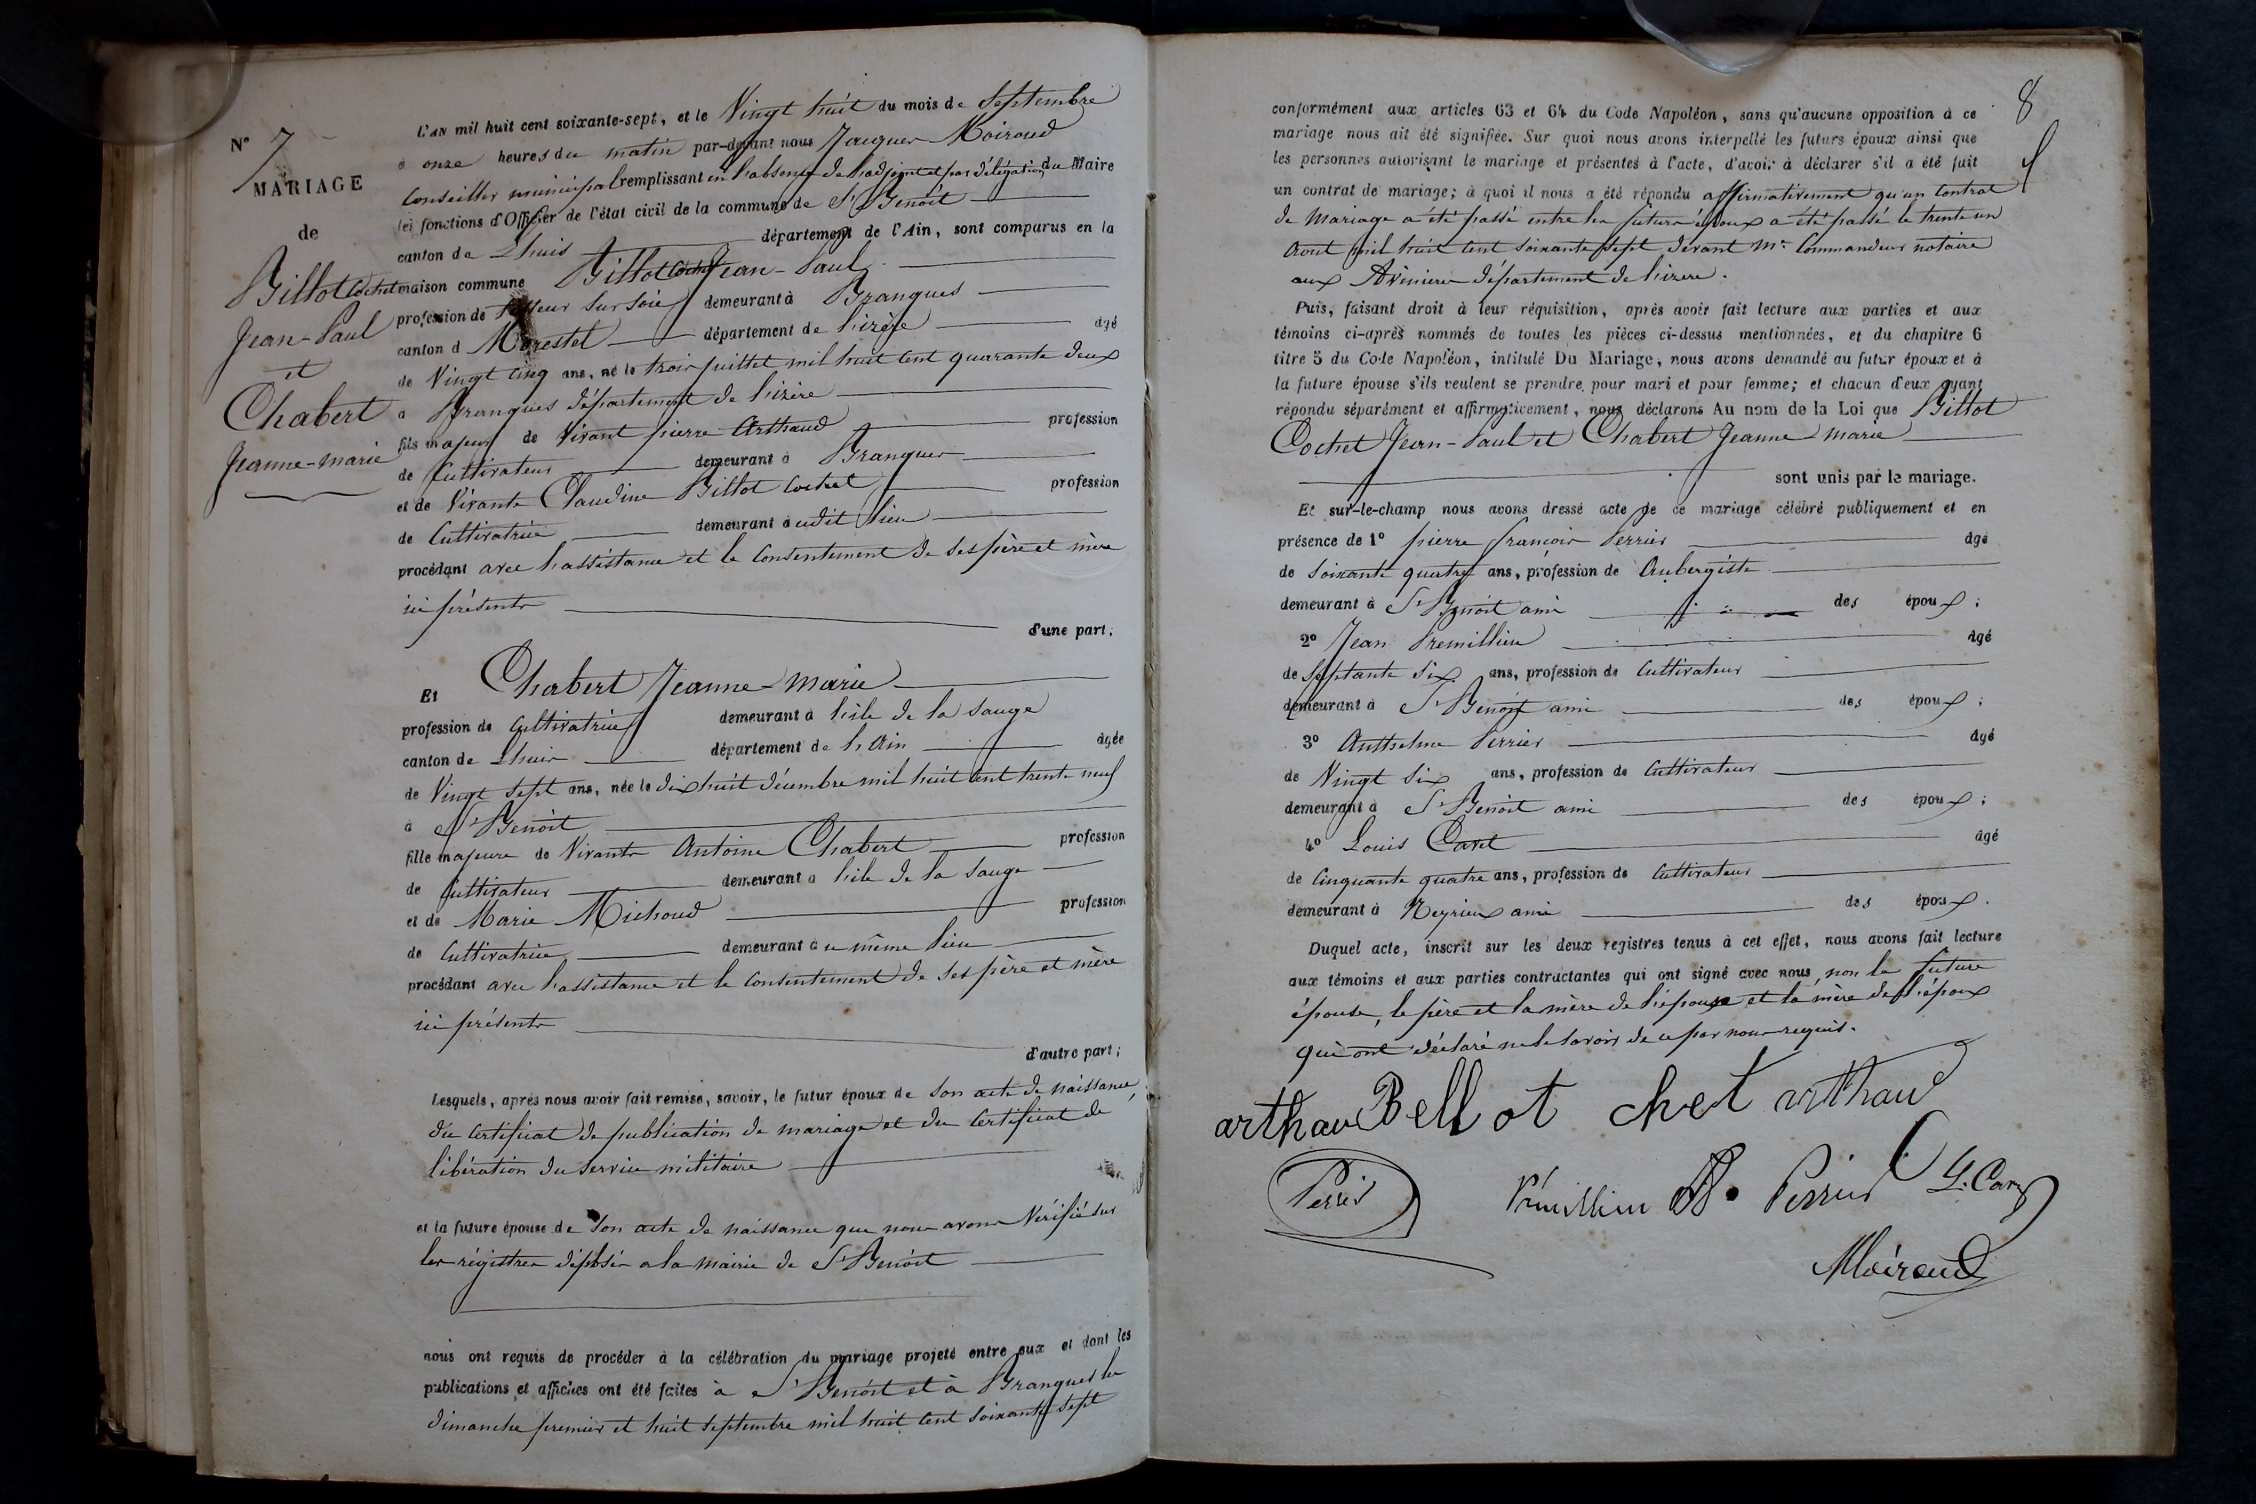 N° 7
MARIAGE
de
Billot Cochet
Jean-Paul
et
Chabert
Jeanne-marie
L'AN mil huit cent soixante-sept, et le Vingt huit du mois de Septembre
à onze heures du matin par-devant nous Jacques Moiroud
Conseiller municipal remplissant en l'absence de l'adjoint et par délégation du Maire
les fonctions d'Officier de l'état civil de la commune de St Benoit
canton de Lhuis département de l'Ain, sont comparus en la
maison commune Billot Cochet Jean-Paul
profession de sur soie demeurant à Brangues
canton d Morestel département de l'izère âgé
de Vingt cinq ans, né le trois juillet mil huit cent quarante deux
à Brangues département de l'izère
fils majeur de Vivant pierre Arthaud profession
de Cultivateur demeurant à Brangues
et de Vivante Claudine Billot Cochet profession
de Cultivatrice demeurant à udit lieu
procédant avec l'assistance et le Consentement de ses père et mère
ici présents
d'une part;
Et Chabert Jeanne-marie
profession de Cultivatrice demeurant à l'ile de la Sauge
canton de Lhuis département de l'Ain âgée
de Vingt sept ans, née le dix huit décembre mil huit cent trente neuf
à St Benoit
fille majeure de Vivants Antoine Chabert profession
de Cultivateur demeurant à l'ile de la Sauge
et de Marie Michoud profession
de Cultivatrice demeurant à ce même lieu
procédant avec l'assistance et le Consentement de ses père et mère
ici présents
d'autre part;
Lesquels, après nous avoir fait remise, savoir, le futur époux de Son acte de naissance,
du certificat de publication de mariage et du Certificat de
libération du service militaire
et la future épouse de Son acte de naissance que nous avons Vérifié sur
les régistres déposés a la mairie de St Benoit
nous ont requis de procéder à la célébration du mariage projeté entre eux et dont les
publications et affiches ont été faites à St Benoit et à Brangues les
dimanches premier et huit Septembre mil huit cent soixante sept
8
conformément aux articles 63 et 64 du Code Napoléon, sans qu'aucune opposition à ce
mariage nous ait été signifiée. Sur quoi nous avons interpellé les futurs époux ainsi que
les personnes autorisant le mariage et présentes à l'acte, d'avoir à déclarer s'il a été fait
un contrat de mariage; à quoi il nous a été répondu affirmativement qu'un Contrat
de Mariage a été passé entre les futurs époux a été passé le trente un
Aout mil huit cent soixante sept devant Me Commandeur notaire
aux Avenieres département de l'izere.
Puis, faisant droit à leur réquisition, après avoir fait lecture aux parties et aux
témoins ci-après nommés de toutes les pièces ci-dessus mentionnées, et du chapitre 6
titre 5 du Code Napoléon, intitulé Du Mariage, nous avons demandé au futur époux et à
la future épouse s'ils veulent se prendre pour mari et pour femme; et chacun d'eux ayant
répondu séparément et affirmativement, nous déclarons Au nom de la Loi que Billot
Cochet Jean-Paul et Chabert Jeanne-marie
sont unis par le mariage.
Et sur-le-champ nous avons dressé acte de ce mariage célébré publiquement et en
présence de 1° pierre françois Perrier âgé
de Soixante quatre ans, profession de Aubergiste
demeurant à St Benoit ami des époux;
2° Jean Premillieu âgé
de Septante six ans, profession de Cultivateur
demeurant à St Benoit ami des époux;
3° Anthelme Perrier âgé
de Vingt Six ans, profession de Cultivateur
demeurant à St Benoit ami des époux;
4° Louis Cavet âgé
de Cinquante quatre ans, profession de Cultivateur
demeurant à Neyrieux ami des époux.
Duquel acte, inscrit sur les deux registres tenus à cet effet, nous avons fait lecture
aux témoins et aux parties contractantes qui ont signé avec nous, non la future
épouse, le père et la mère de l'épouse et la mère de l'époux
qui ont déclaré ne le savoir de ce par nous requis.
arthau Bellot chet arthaud
Perrier Prémillieu A. Perrier L. Cavet
Moiroud